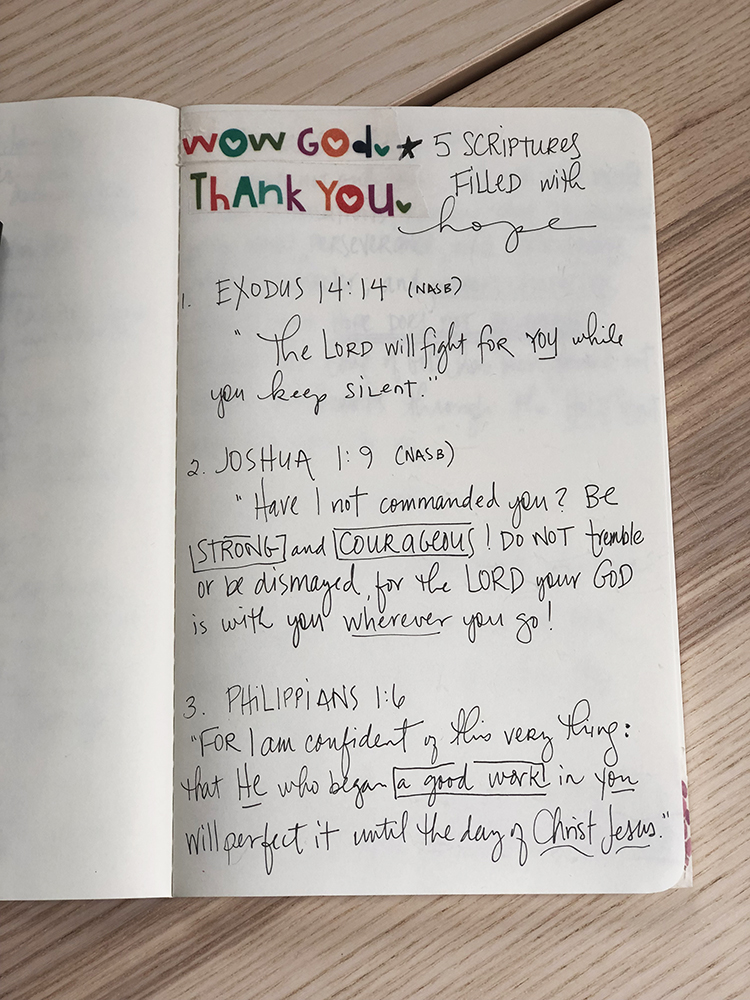 WOW GOD. ★ 5 SCRIPTURES
THANK YOU. FILLED with
hope
1. EXODUS 14:14 (NASB)
"The LORD will fight for YOU while
you keep silent."
2. JOSHUA 1:9 (NASB)
"Have I not commanded you? Be
STRONG and COURAGEOUS! DO NOT tremble
or be dismayed, for the LORD your GOD
is with you wherever you go!
3. PHILIPPIANS 1:6
"FOR I am confident of this very thing:
that He who began a good work in you
will perfect it until the day of Christ Jesus."